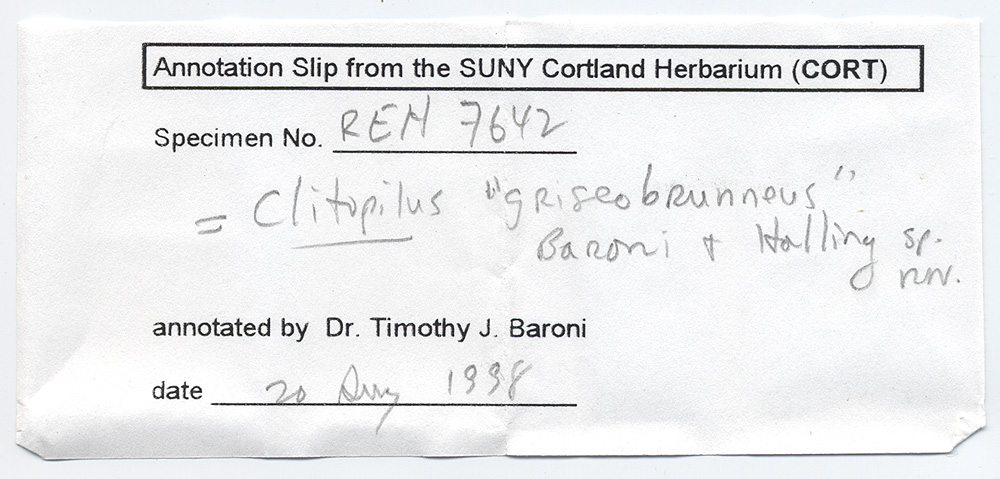 Annotation Slip from the SUNY Cortland Herbarium (CORT)
Specimen No. REH 7642
= Clitopilus "griseobrunneus"
Baroni + Halling sp.
nov.
annotated by Dr. Timothy J. Baroni
date 20 Aug 1998